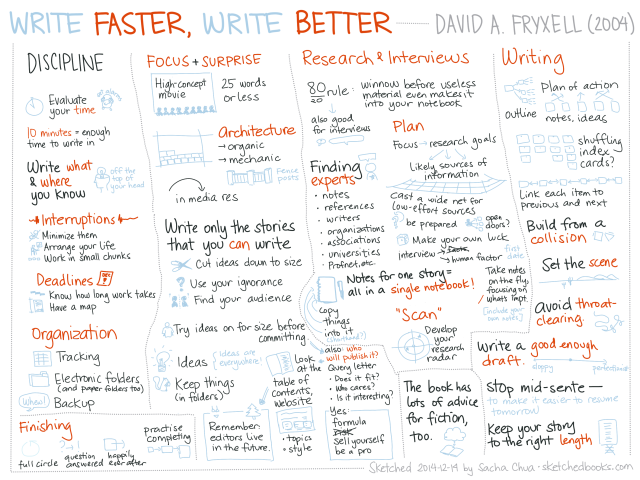 WRITE FASTER, WRITE BETTER
DAVID A. FRYXELL (2004)
DISCIPLINE
Evaluate
your time
no alarm
10 minutes = enough
time to write in
Write what
& where
you know
off the
top of
your head
Interruptions
Minimize them
Arrange your life
Work in small chunks
Deadlines
Know how long work takes
Have a map
Organization
Tracking
Electronic folders
(and paper folders too)
Whew!
Backup
FOCUS + SURPRISE
High-concept
movie
25 words
or less
Architecture
→ organic
→ mechanic
Fence
posts
in media res
Write only the stories
that you can write
Cut ideas down to size
? Use your ignorance
Find your audience
Try ideas on for size before
committing
Ideas
Ideas are
everywhere!
Keep things
(in folders)
Look
at the
table of
contents,
website
• topics
• style
Remember:
editors live
in the future.
Research & Interviews
80/20 rule:
winnow before useless
material even makes it
into your notebook
also good
for interviews
Finding
experts
• notes
• references
• writers
• organizations
• associations
• universities
• Profnet, etc.
Plan
Focus → research goals
Likely sources of
information
Cast a wide net for
low-effort sources
be prepared
open
doors?
Make your own luck
Interview → facts
→ human factor
first
date
Notes for one story =
all in a single notebook!
Copy
things
into it
(shorthand?)
"Scan"
Develop
your
research
radar
Take notes
on the fly,
focusing on
what's impt.
(include your
own notes)
also who
will publish it?
Query letter
• Does it fit?
• Who cares?
• Is it interesting?
Yes:
formula
Risk
Sell yourself
be a pro
Writing
outline
Plan of action
notes, ideas
shuffling
index
cards?
Link each item to
previous and next
Build from a
collision
Set the scene
avoid throat-
clearing.
Write a good enough
draft.
sloppy
perfectionist
The book has
lots of advice
for fiction,
too.
Stop mid-sente —
to make it easier to resume
tomorrow!
Keep your story
to the right length
Finishing
full circle
question
answered
happily
ever after
practise
completing
Sketched 2014-12-19 by Sacha Chua • sketchedbooks.com